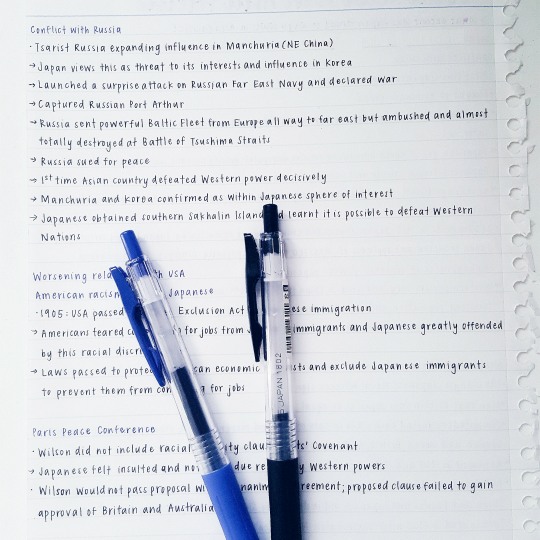 Conflict with Russia
· Tsarist Russia expanding influence in Manchuria (NE China)
→ Japan views this as threat to its interests and influence in Korea
→ Launched a surprise attack on Russian Far East Navy and declared war
→ Captured Russian Port Arthur
→ Russia sent powerful Baltic Fleet from Europe all way to far east but ambushed and almost
totally destroyed at Battle of Tsushima Straits
→ Russia sued for peace
→ 1st time Asian country defeated Western power decisively
→ Manchuria and Korea confirmed as within Japanese sphere of interest
→ Japanese obtained southern Sakhalin Island d learnt it is possible to defeat Western
Nations
Worsening rela th USA
American racism Japanese
· 1905: USA passed Exclusion Act ese immigration
→ Americans feared co n for jobs from immigrants and Japanese greatly offended
by this racial discri
→ Laws passed to protec can economic sts and exclude Japanese immigrants
to prevent them from com g for jobs
Paris Peace Conference
· Wilson did not include racial ity clau s' Covenant
→ Japanese felt insulted and no due re by Western powers
· Wilson would not pass proposal wi nanim reement; proposed clause failed to gain
approval of Britain and Australia
JAPAN 1802